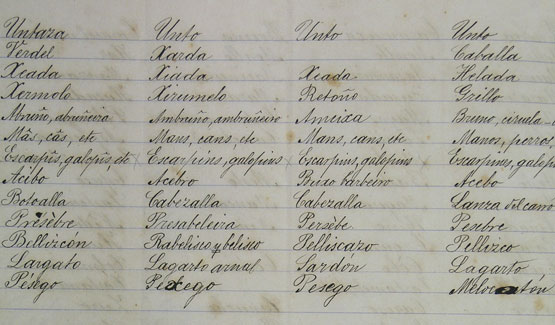 Untaza Unto Unto Unto
Verdel Xarda Caballa
Xeada Xiada Xeada Helada
Xermolo Xirumelo Retoño Grillo
Abruño, abruñeira Ambruño, ambruñeiro Ameixa Bruno, ciruela
Mâs, câs, etc Mans, cans, etc Mans, cans, etc Manos, perros,
Escarpûs, galopûs, etc Escarpins, galopins Escarpins, galopins Escarpines,
Acibo Acibro Buxo barbeiro Acebo
Botoalla Cabezalla Cabezalla Lanza del carro
Presèbre Presabeleira Persèbe Pesebre
Bellizcón Rabelisco y belisco Pelliscazo Pellizco
Largato Lagarto arnal Sardón Lagarto
Pésego Pexego Pesego Melocotón